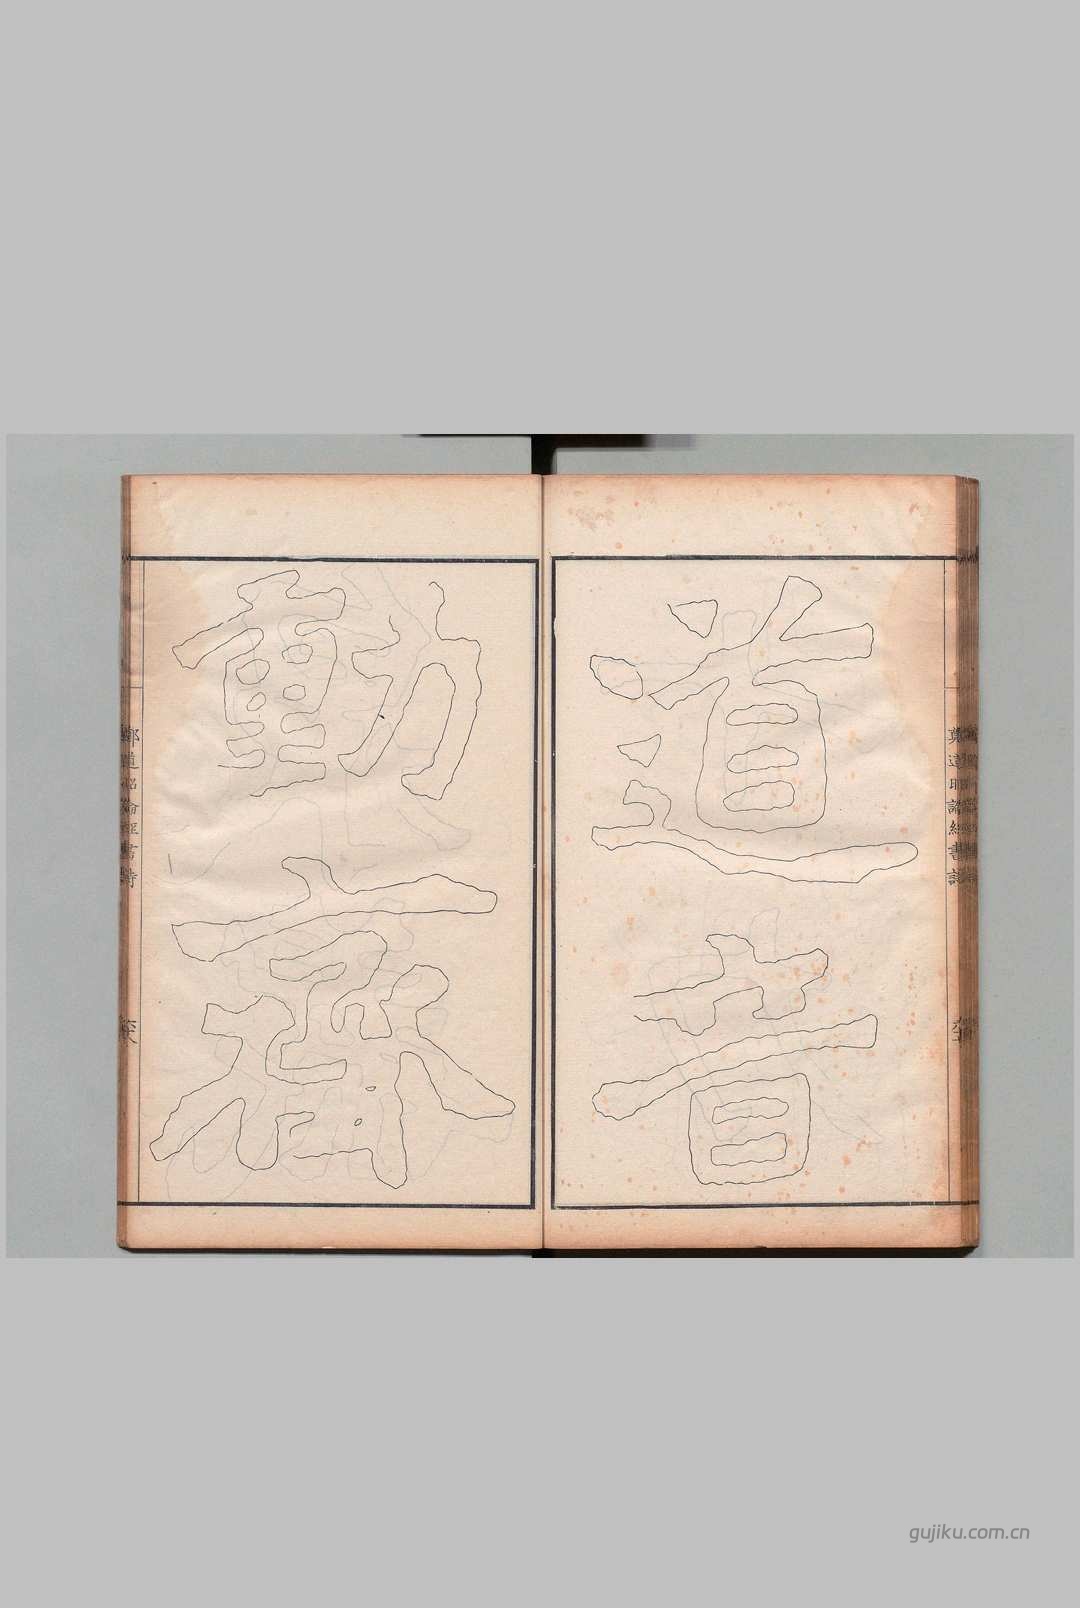 鄭道昭論經書詩
道音
動齊
鄭道昭論經書詩
gujiku.com.cn